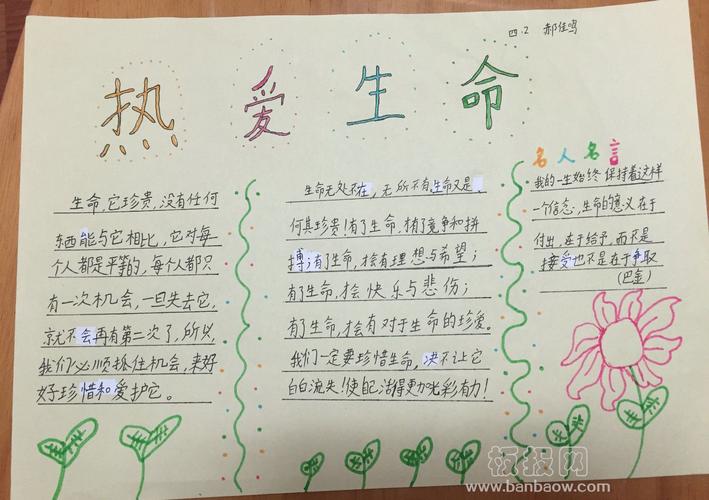 四.2 郝佳鸣
热爱生命
生命,它珍贵,没有任何
东西能与它相比,它对每
个人都是平等的,每个人都只
有一次机会,一旦失去它,
就不会再有第二次了,所以,
我们必顺抓住机会,来好
好珍惜和爱护它。
生命无处不在,无所不有.生命又是
何其珍贵!有了生命,才有竞争和拼
搏;有了生命,才会有理想与希望;
有了生命,才会快乐与悲伤;
有了生命,才会有对于生命的珍爱。
我们一定要珍惜生命,决不让它
白白流失!使自己活得更加光彩有力!
名人名言
我的一生始终保持着这样
一个信念,生命的意义在于
付出,在于给予,而不是
接受也不是在于争取
(巴金)
板报网
www.banbaow.com